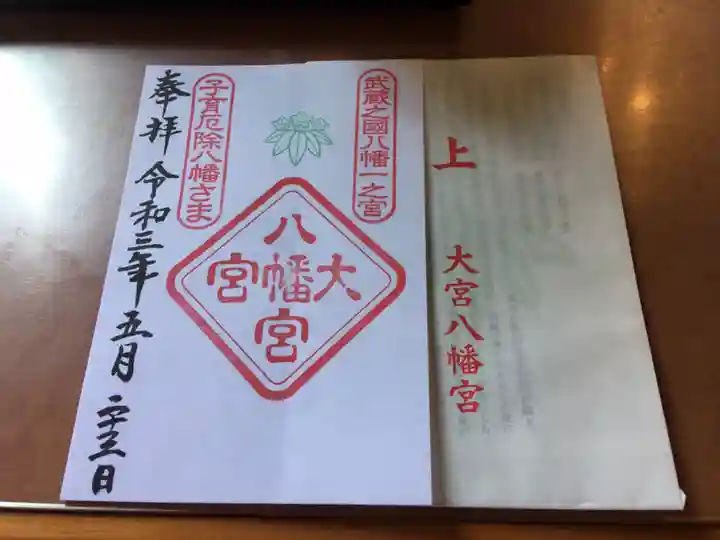 上
大宮八幡宮
武蔵之國八幡一之宮
大宮
八幡宮
子育厄除八幡さま
奉拝 令和三年五月二十三日